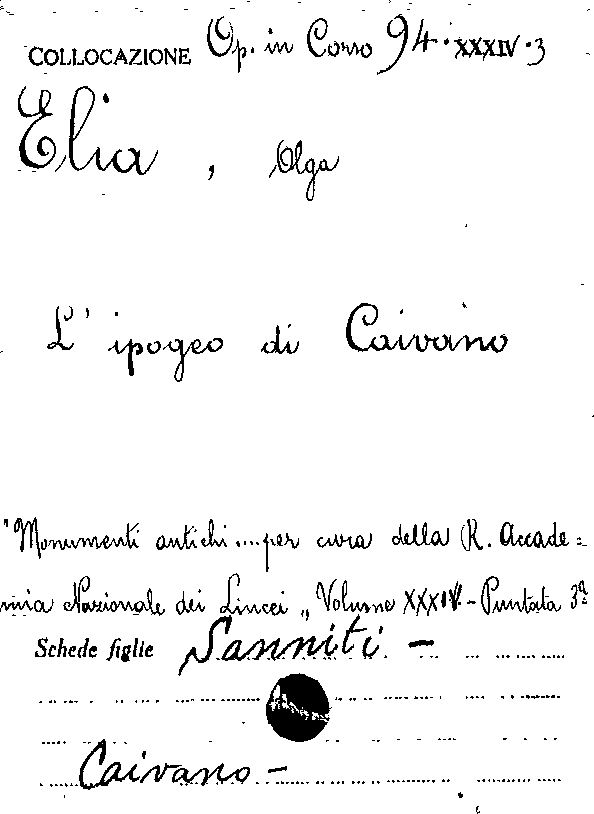 COLLOCAZIONE Op. in Corso 94.XXXIV.3
Elia, Olga
L' ipogeo di Caivano
"Monumenti antichi....per cura della R. Accade=
mia Nazionale dei Lincei „ Volume XXXIV - Puntata 3ª
Schede figlie Sanniti -
Caivano -